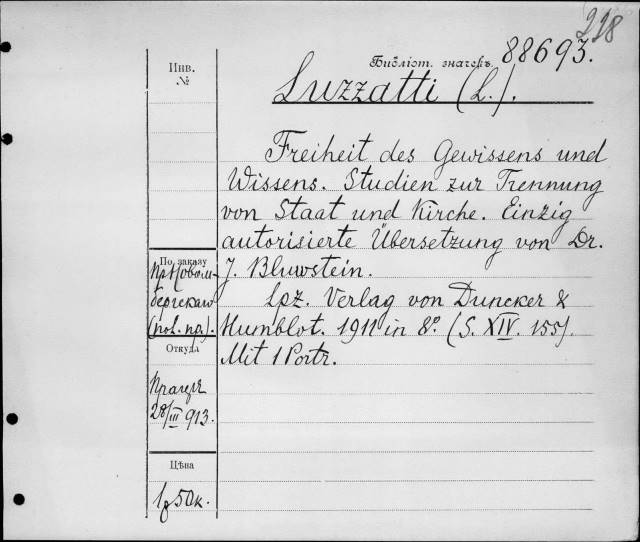 228
Библіот. значекъ 88693.
Luzzatti (L.).
Инв.
№
Freiheit des Gewissens und
Wissens. Studien zur Trennung
von Staat und Kirche. Einzig
autorisierte Übersetzung von Dr.
J. Bluwstein.
Lpz. Verlag von Duncker &
Humblot. 1911 in 8º. (S. XIV. 155).
Mit 1 Portr.
По заказу
(пол. пр.).
Откуда
28/III 913.
Цѣна
1р 50к.